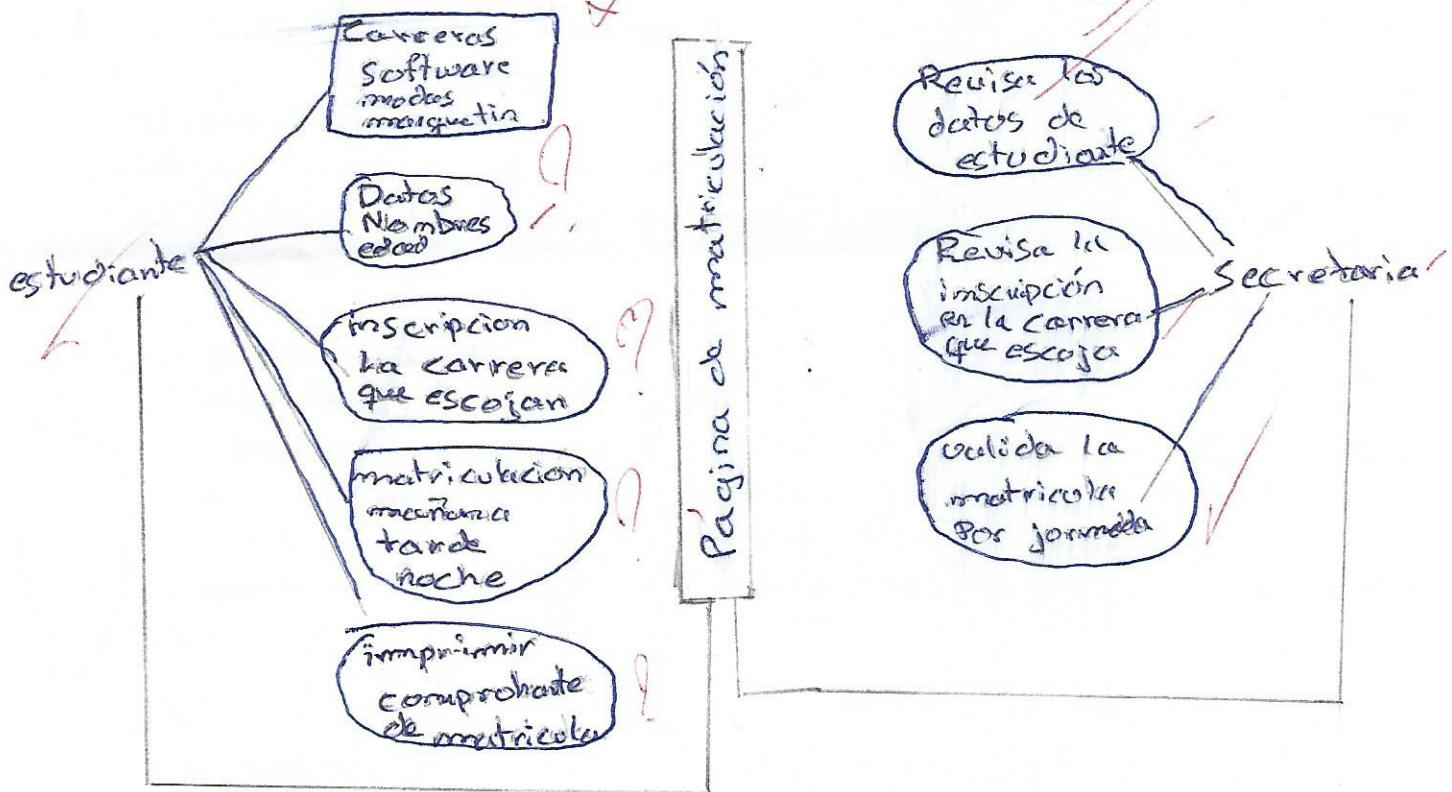 Carreras
Software
modas
marquetin
Datos
Nombres
edad
estudiante
inscripcion
La carrera
que escojan
matriculacion
mañana
tarde
noche
imprimir
comprobante
de matricula
Página de matriculación
Revisa los
datos de
estudiante
Revisa la
inscripción
en la carrera
que escoja
Secretaria
valida la
matricula
Por jornada